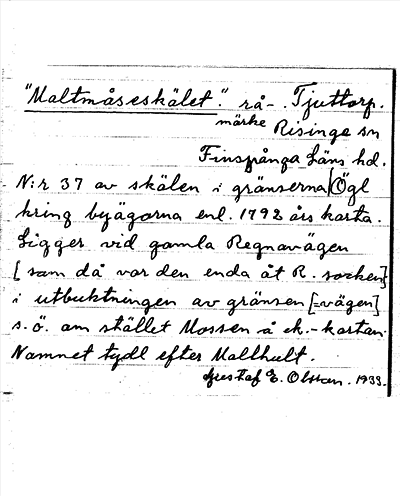 "Maltmåseskälet". rå- . Tjuttorp.
märke Risinge sn
Finspånga Läns hd.
N:r 37 av skälen i gränserna Ögl
kring byägorna enl. 1792 års karta.
Ligger vid gamla Regnavägen
[som då var den enda åt R. socken]
i utbuktningen av gränsen [=vägen]
s.ö. om stället Mossen å ek.-kartan.
Namnet tydl efter Malthult.
Gustaf E. Olsson. 1933.